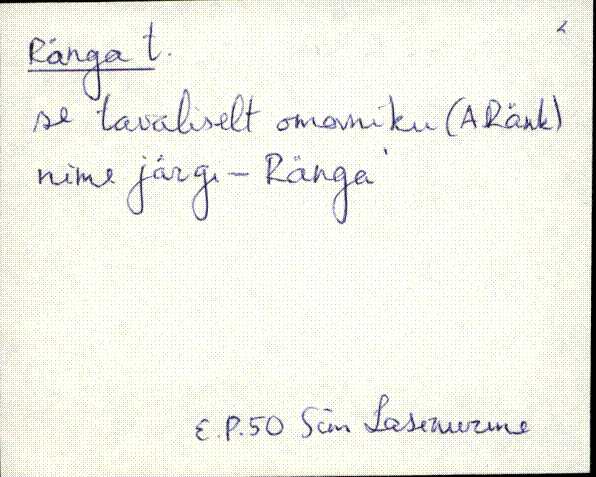 Ränga t.
se tavaliselt omaniku (A Ränk)
nime järgi – Ränga
E.P. 50 Sim Lasinurme